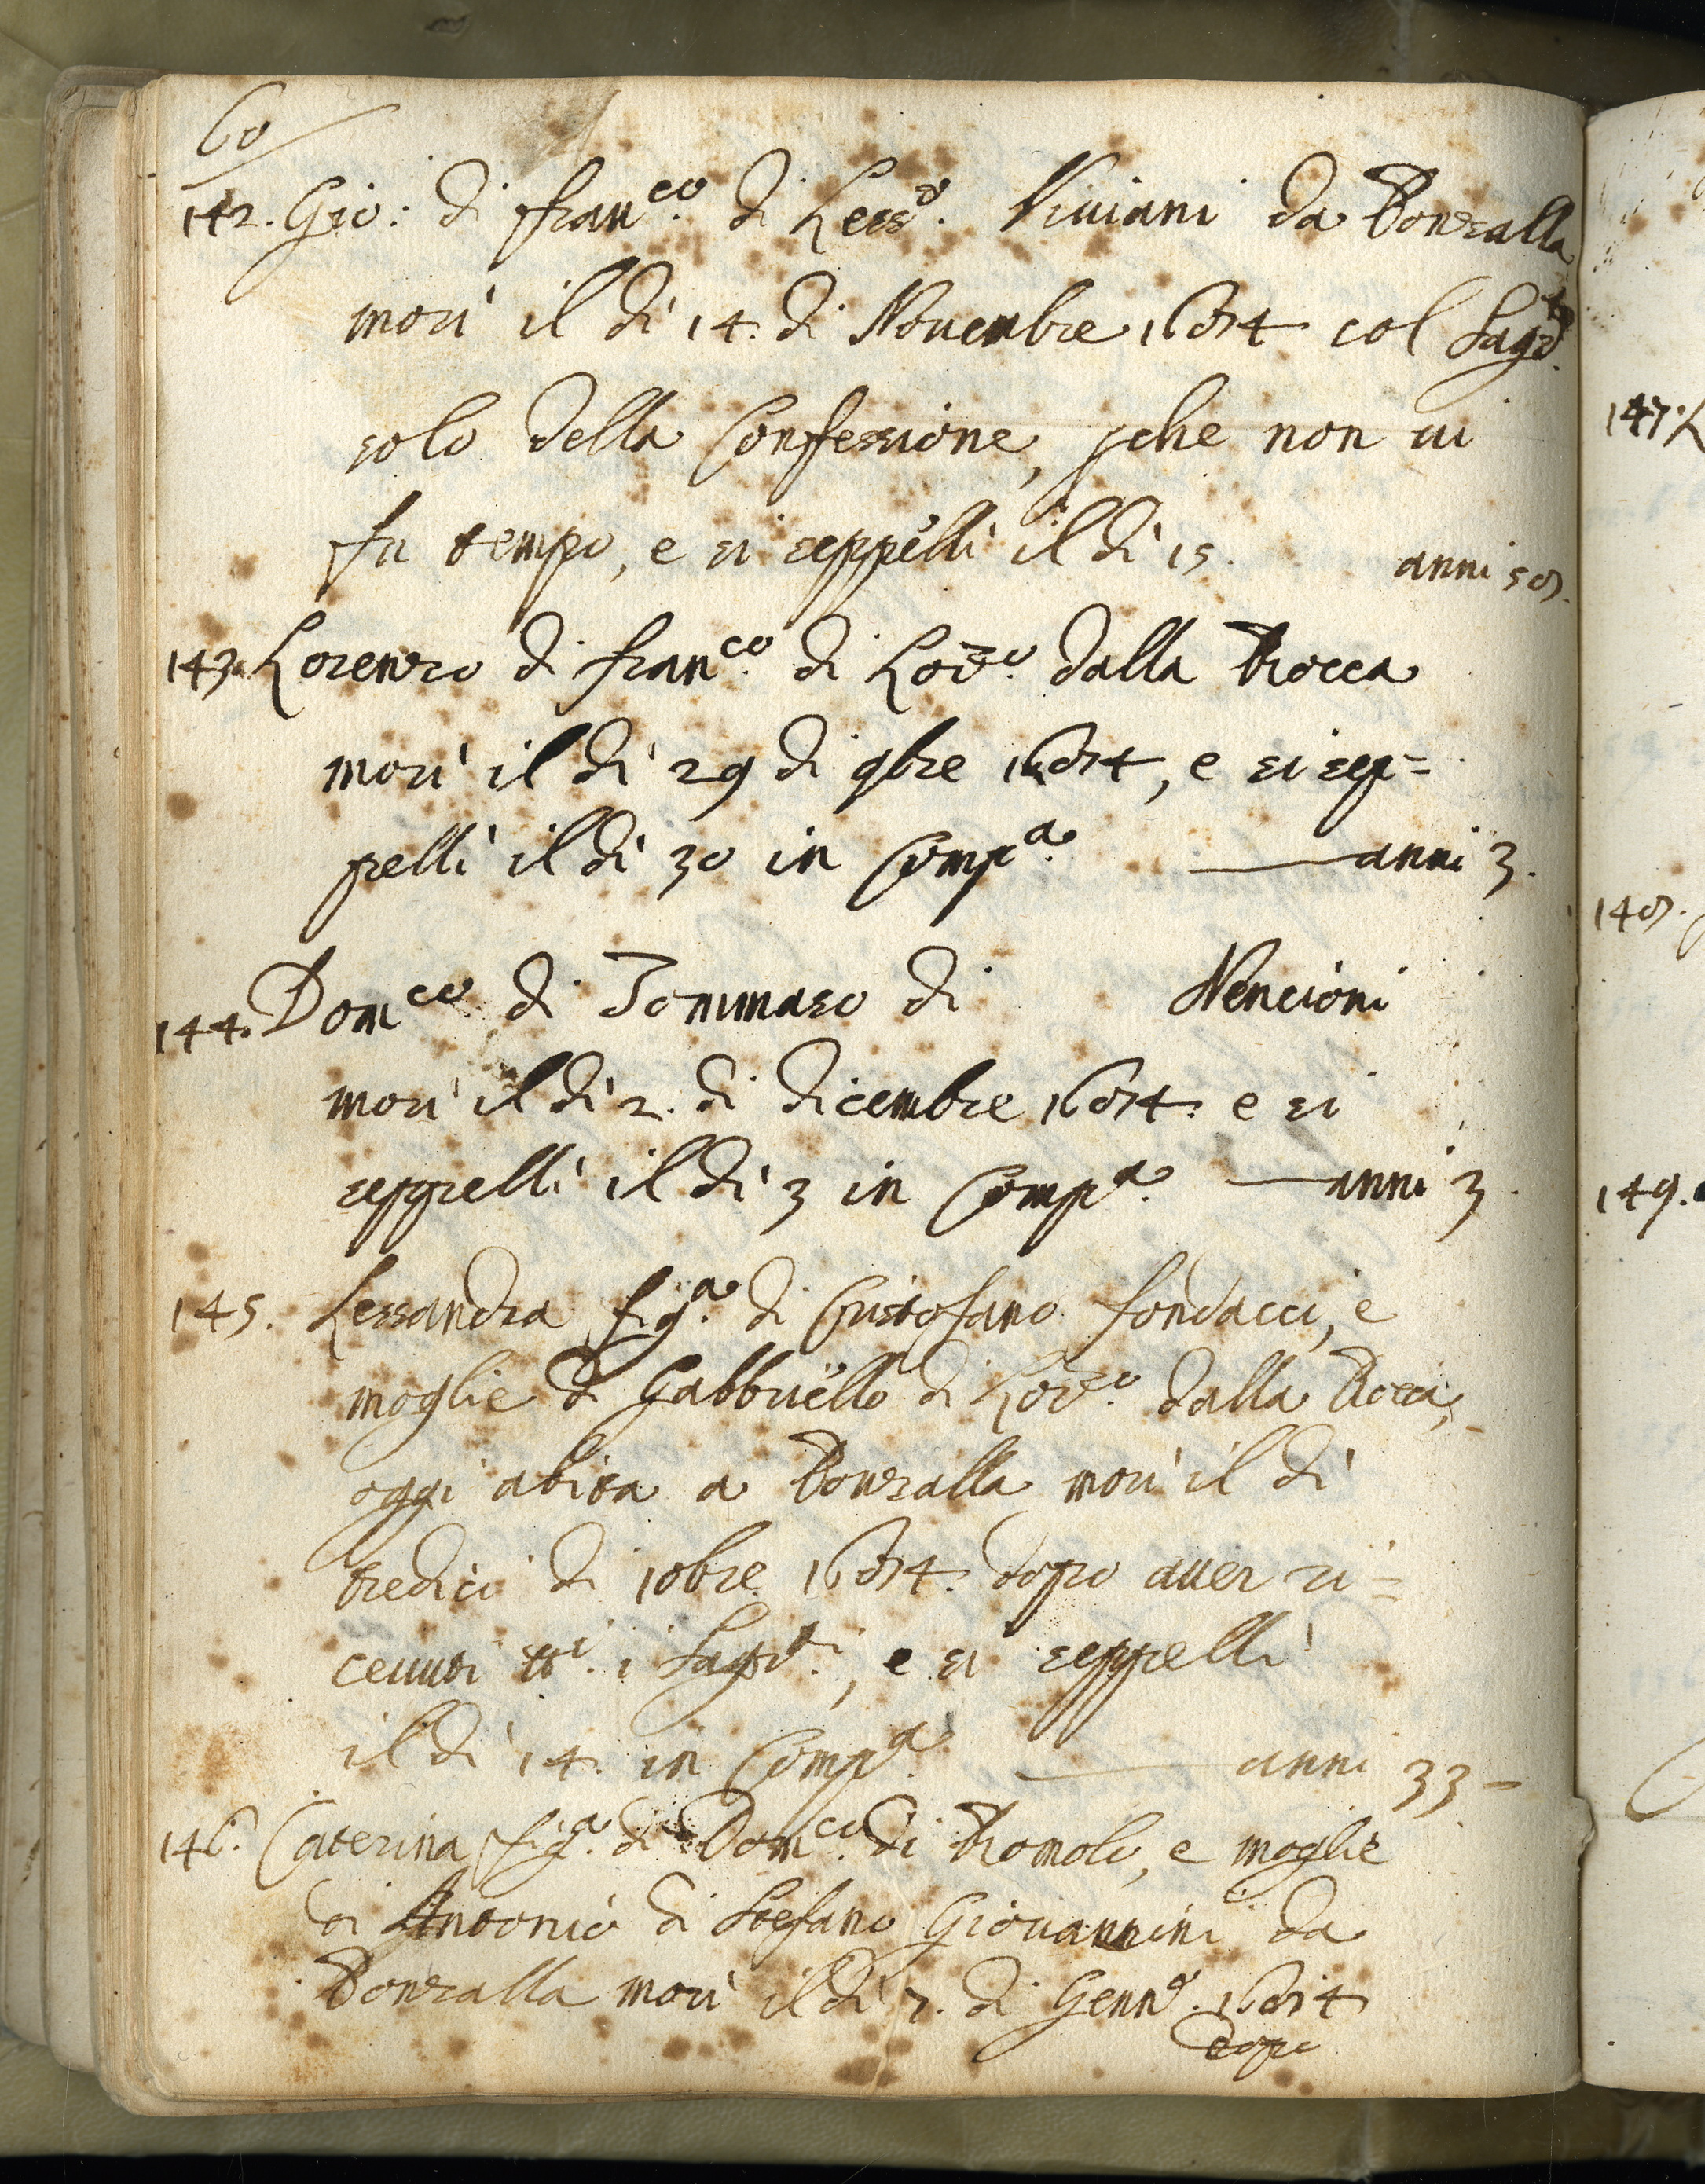 60
142. Gio: di Fran.co di Less.o Viviani da Ponzalla
morì il dì 14. di Novembre 1684 col Sag.to
solo della Confessione, pche non vi
fu tempo, e si seppellì il dì 15. anni 58.
143. Lorenzo di Fran.co di Lor.zo dalla Rocca
morì il dì 29 di 9bre 1684, e si sep=
pellì il dì 30 in Comp.a anni 3.
144. Dom.co di Tommaso di Nencioni
morì il dì 2. di Dicembre 1684. e si
seppellì il dì 3 in Comp.a anni 3
145. Lessandra fig.a di Cristofano Fondacci, e
moglie di Gabbriello di Lor.zo dalla Rocca,
oggi abita a Ponzalla morì il dì
tredici di 10bre 1684. dopo aver ri=
cevuti tt.i i Sag.ti, e si seppellì
il dì 14. in Comp.a anni 33-
146. Caterina fig.a di Dom.co di Romolo, e moglie
di Antonio di Stefano Giovannini da
Ponzalla morì il dì 7. di Genn.o 1684
dopo
147. L
148.
149.